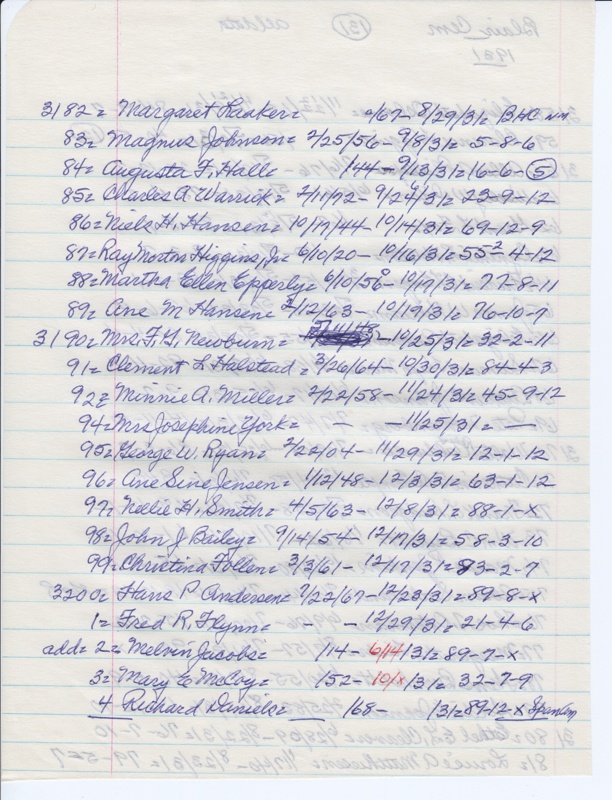 3182= Margaret Raaker= 9/67- 8/29/31= BHC
83= Magnus Johnson= 2/25/56- 9/8/31= 5-8-6
84= Augusta F. Hall= /44- 9/13/31= 16-6- 5
85= Charles A Warrick= 2/11/72- 9/24/31= 23-9-12
86= Niels H. Hansen= 10/17/44- 10/14/31= 69-12-9
87= Ray Morton Higgins, Jr= 6/10/20- 10/16/31= 55-4-12
88= Martha Ellen Epperly= 6/10/56- 10/17/31= 77-8-11
89= Ane M Hansen= 2/12/63- 10/19/31= 76-10-7
3190= Mrs. F. L. Newburn= -10/25/31= 32-2-11
91= Clement L Halstead= 3/26/64- 10/30/31= 84-4-3
92= Minnie A. Miller= 2/22/58- 11/24/31= 45-9-12
94= Mrs Josephine York= - -11/25/31= —
95= George W. Ryan= 2/22/04- 11/29/31= 12-1-12
96= Ane Sine Jensen= 1/12/48- 12/3/31= 63-1-12
97= Nellie H. Smith= 4/5/63- 12/8/31= 88-1-X
98= John J Bailey= 9/14/54- 12/17/31= 58-3-10
99= Christina Follen= 3/3/61- 12/17/31= 83-2-7
3200= Hans P Andersen= 7/22/67- 12/23/31= 89-8-X
1= Fred R. Flynn= - -12/29/31= 21-4-6
add= 2= Melvin Jacobs= /14- 6/14/31= 89-7-X
3= Mary E McCoy= /52- 10/x/31= 32-7-9
4 Richard Daniels= /68- /31= 89-12-X Span Am